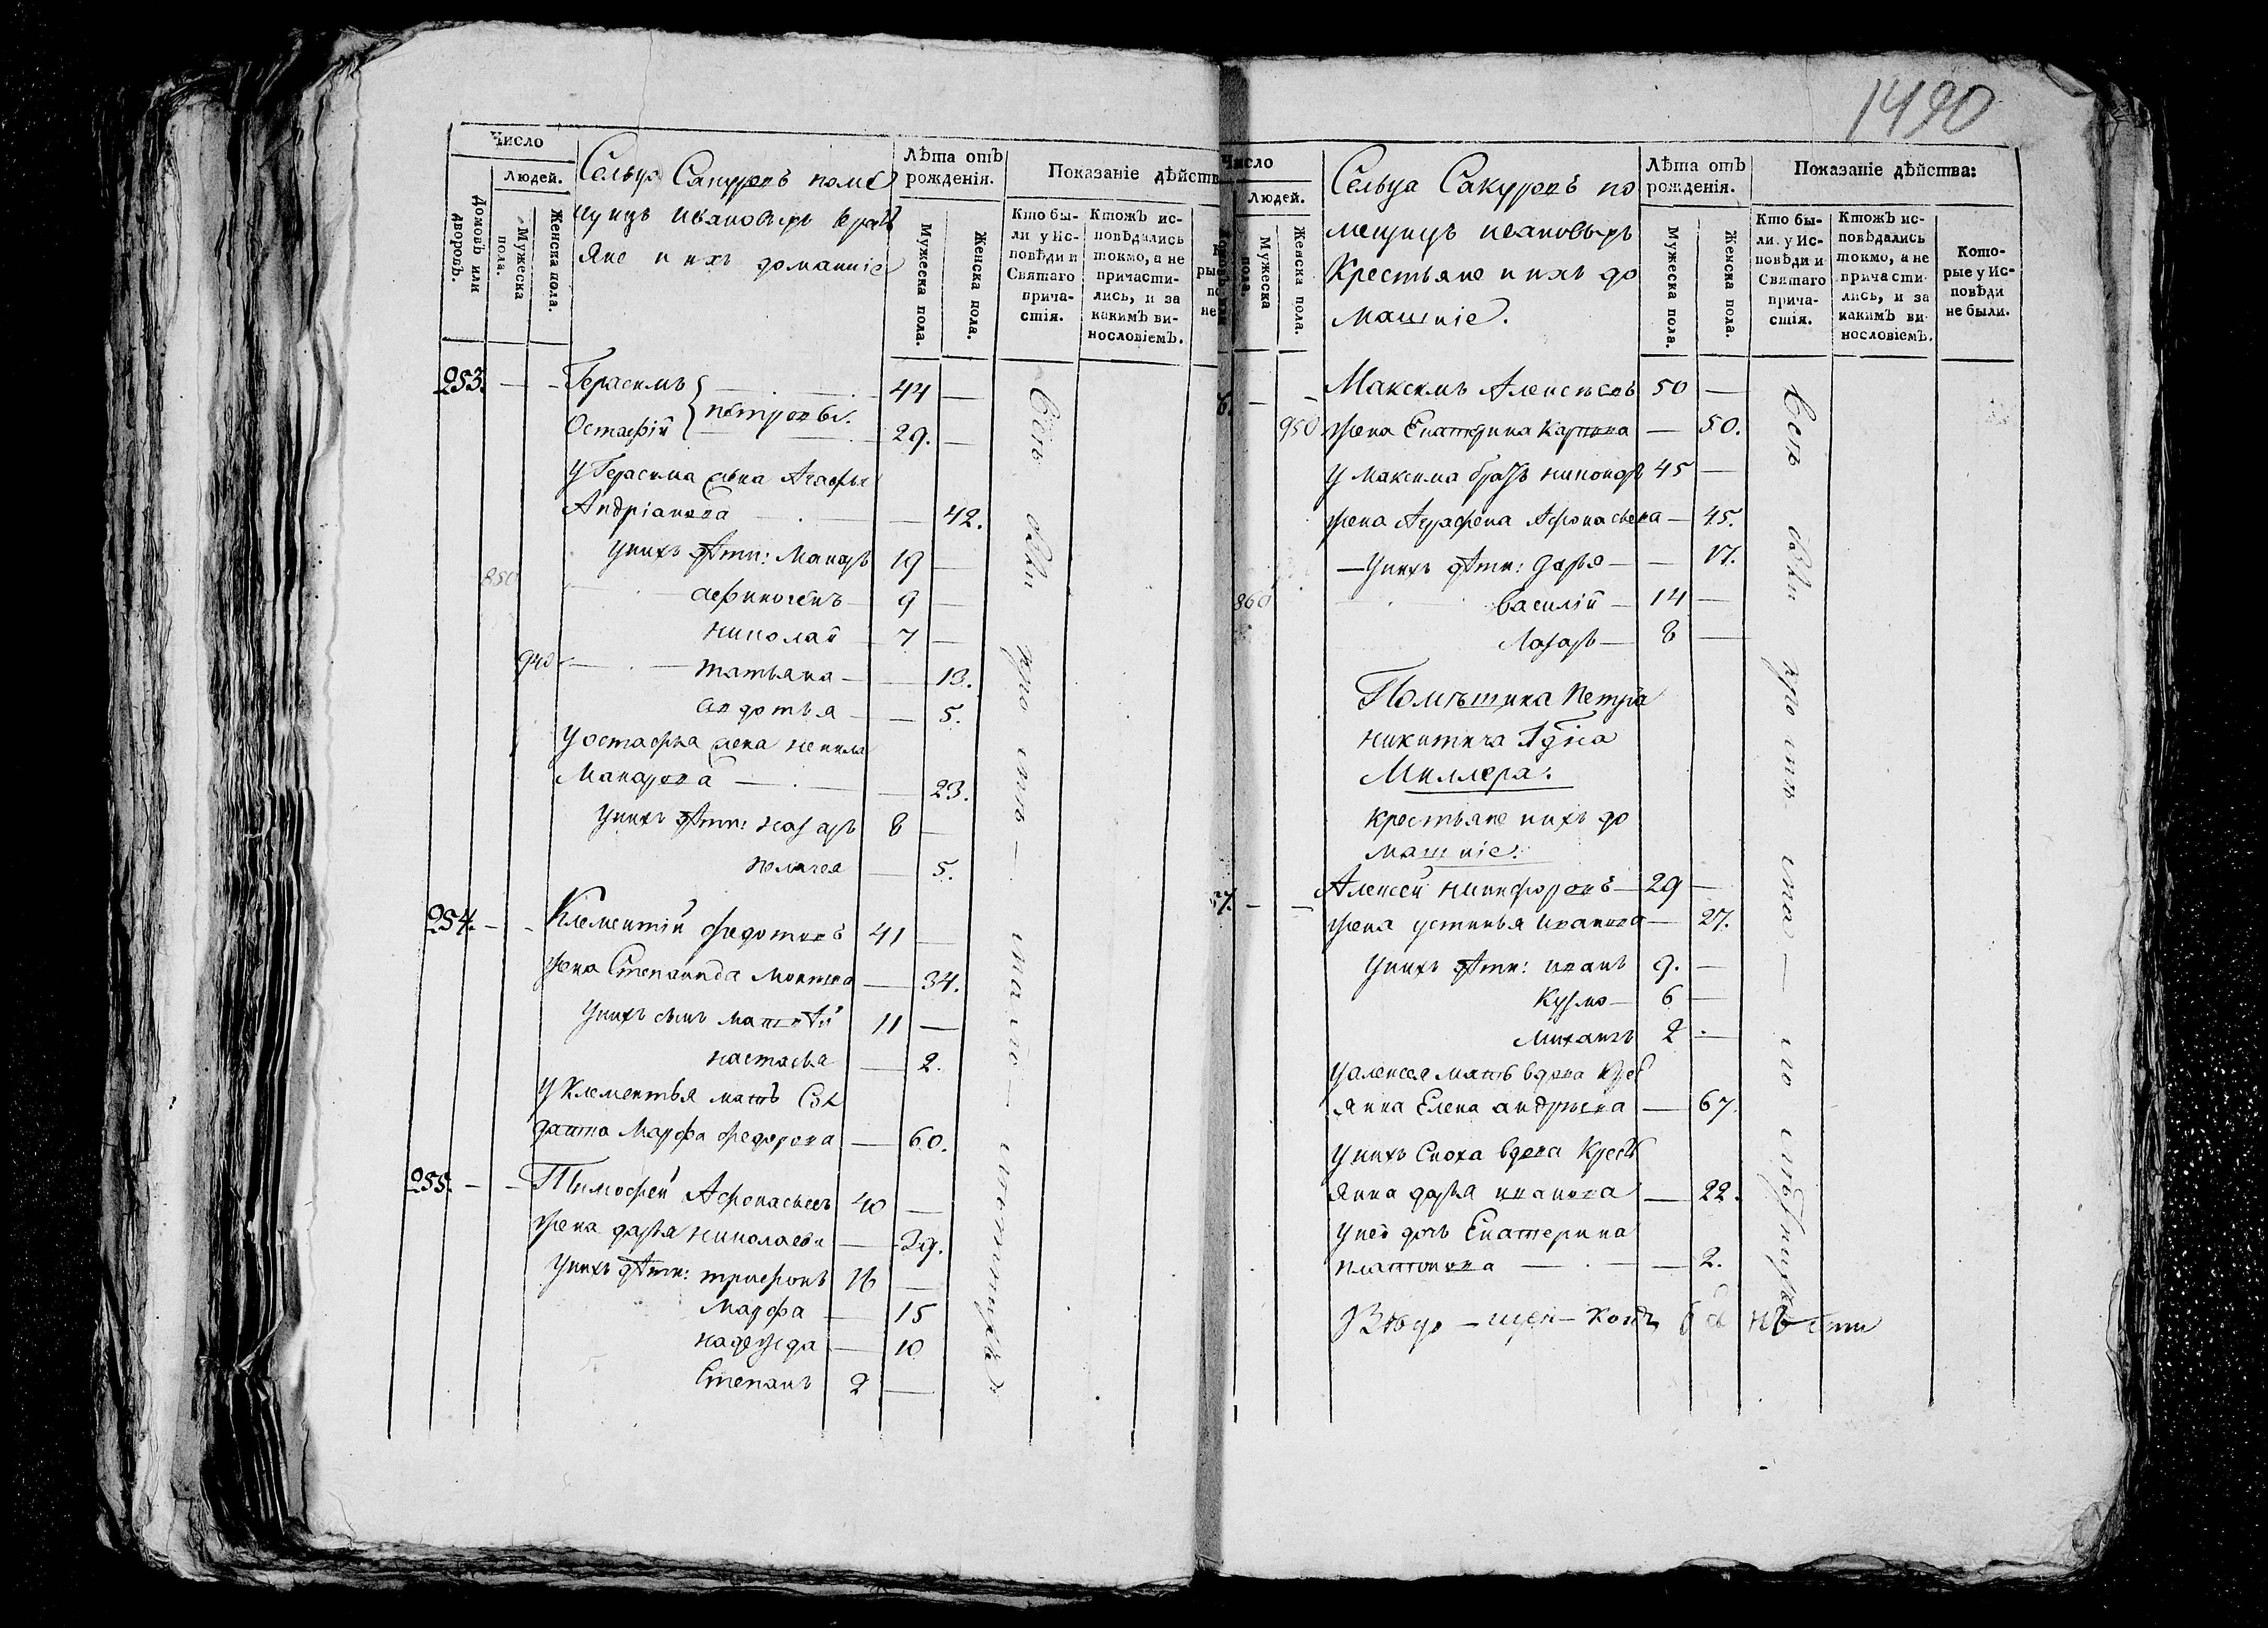 1490
Число
Людей.
Домовъ или дворовъ.
Мужеска пола.
Женска пола.
Сельца Сакуровъ поме
щицъ Ивановыхъ крѣ
яне и ихъ домашніе
Лѣта отъ рожденія.
Мужеска пола.
Женска пола.
Показаніе дѣйств
Кто бы-
ли у Ис-
повѣди и
Святаго
прича-
стія.
Ктожъ ис-
повѣдались
токмо, а не
причасти-
лись, и за
какимъ ви-
нословіемъ.
253. — — Герасимъ — 44 —
Остафій } петровы. — 29. —
У Герасима жена Агафья
Андріанова — — 42.
У нихъ дѣти: Макаръ 19 —
850 афиногенъ — 9 —
николай — 7 —
940 татьяна — — 13.
авдотья — — 5.
У остафья жена ненила
Макарова — — 23.
У нихъ дѣти: назаръ 8 —
пелагея — 5.
254. — — Клементій Федотовъ 41 —
жена Степанида — 34.
У нихъ сынъ матвѣй 11 —
настасья — 2.
У Клементья мать Сол
датка Марфа Федорова — 60.
255. — — Тимофей Афонасьевъ 40 —
жена дарья николаева — 39.
У нихъ дѣти: трифонъ 16 —
Марфа — 15
надежда — 10
Степанъ 2 —
Число
Людей.
Мужеска пола.
Женска пола.
Сельца Сакуровъ по
мещицъ ивановыхъ
Крестьяне и ихъ до
машніе.
Лѣта отъ рожденія.
Мужеска пола.
Женска пола.
Показаніе дѣйства:
Кто бы-
ли у Ис-
повѣди и
Святаго
прича-
стія.
Ктожъ ис-
повѣдались
токмо, а не
причасти-
лись, и за
какимъ ви-
нословіемъ.
Кото-
рые у Ис-
повѣди
не были.
6. — — Максимъ Алексѣевъ 50 —
950 жена Екатерина Карпова — 50.
У Максима братъ никоноръ 45 —
жена Аграфена Афонасьева — 45.
— У нихъ дѣти: дарья — — 17.
860 василій — 14 —
Лазарь — 8 —
Помѣщика Петра
никитича
Миллера:
крестьяне и ихъ до
машніе:
57. — — Алексей никифоровъ — 29 —
жена устинья иванова — 27.
У нихъ дѣти: иванъ 9. —
Кузма — 6 —
михаилъ 2 —
У алексея мать вдова крес
янка Елена андрѣева — 67.
У нихъ Сноха вдова Крест
янка дарья иванова — 22.
У ней дочь Екатерина
платонова — — 2.